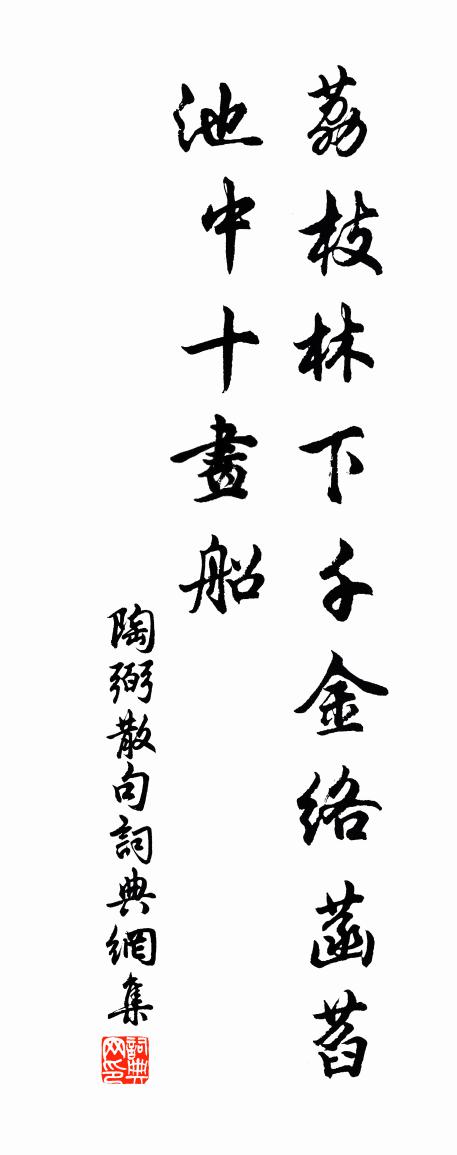 荔枝林下千金絡菡萏
池中十畫船
陶弼散句詞典網集
詞典网印